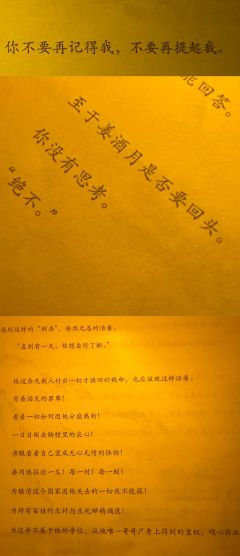 你不要再记得我，不要再提起我。
能回答。
至于姜酒月是否要回头。
你没有思考。
“绝不。”
遇到这样的“刺客”，安然无恙的活着。
“直到有一天，你想自行了断。”
他这条无数人付出一切才换回的贱命，也应该就这样活着。
背着滔天的罪孽！
看着一切如何因他分崩离析！
一日日剜去胸膛里的良心！
亲眼看着自己变成无心无情的怪物！
要用他往后一生！每一时！每一刻！
为酷活这个国家因他失去的一切夜不能寐！
为所有百姓的生计与生死殚精竭虑！
为这并不属于他的帝位，从他唯一哥哥尸身上得到的皇权，呕心沥血